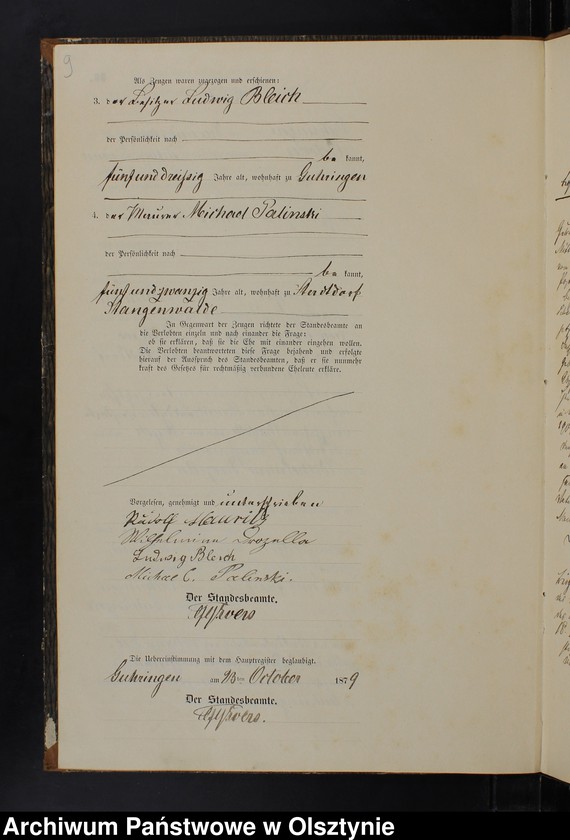 9
Als Zeugen waren zugezogen und erschienen:
3. der Besitzer Ludwig Bleich
der Persönlichkeit nach
be kannt,
fünfunddreißig Jahre alt, wohnhaft zu Guhringen
4. der Maurer Michael Palinski
der Persönlichkeit nach
be kannt,
fünfundzwanzig Jahre alt, wohnhaft zu
Stangenwalde
In Gegenwart der Zeugen richtete der Standesbeamte an
die Verlobten einzeln und nach einander die Frage:
ob sie erklären, daß sie die Ehe mit einander eingehen wollen.
Die Verlobten beantworteten diese Frage bejahend und erfolgte
hierauf der Ausspruch des Standesbeamten, daß er sie nunmehr
kraft des Gesetzes für rechtmäßig verbundene Eheleute erkläre.
Vorgelesen, genehmigt und unterschrieben
Rudolf Mauritz
Wilhelmine
Ludwig Bleich
Michael Palinski.
Der Standesbeamte.
Die Uebereinstimmung mit dem Hauptregister beglaubigt.
Guhringen am October 1879
Der Standesbeamte.
Archiwum Państwowe w Olsztynie